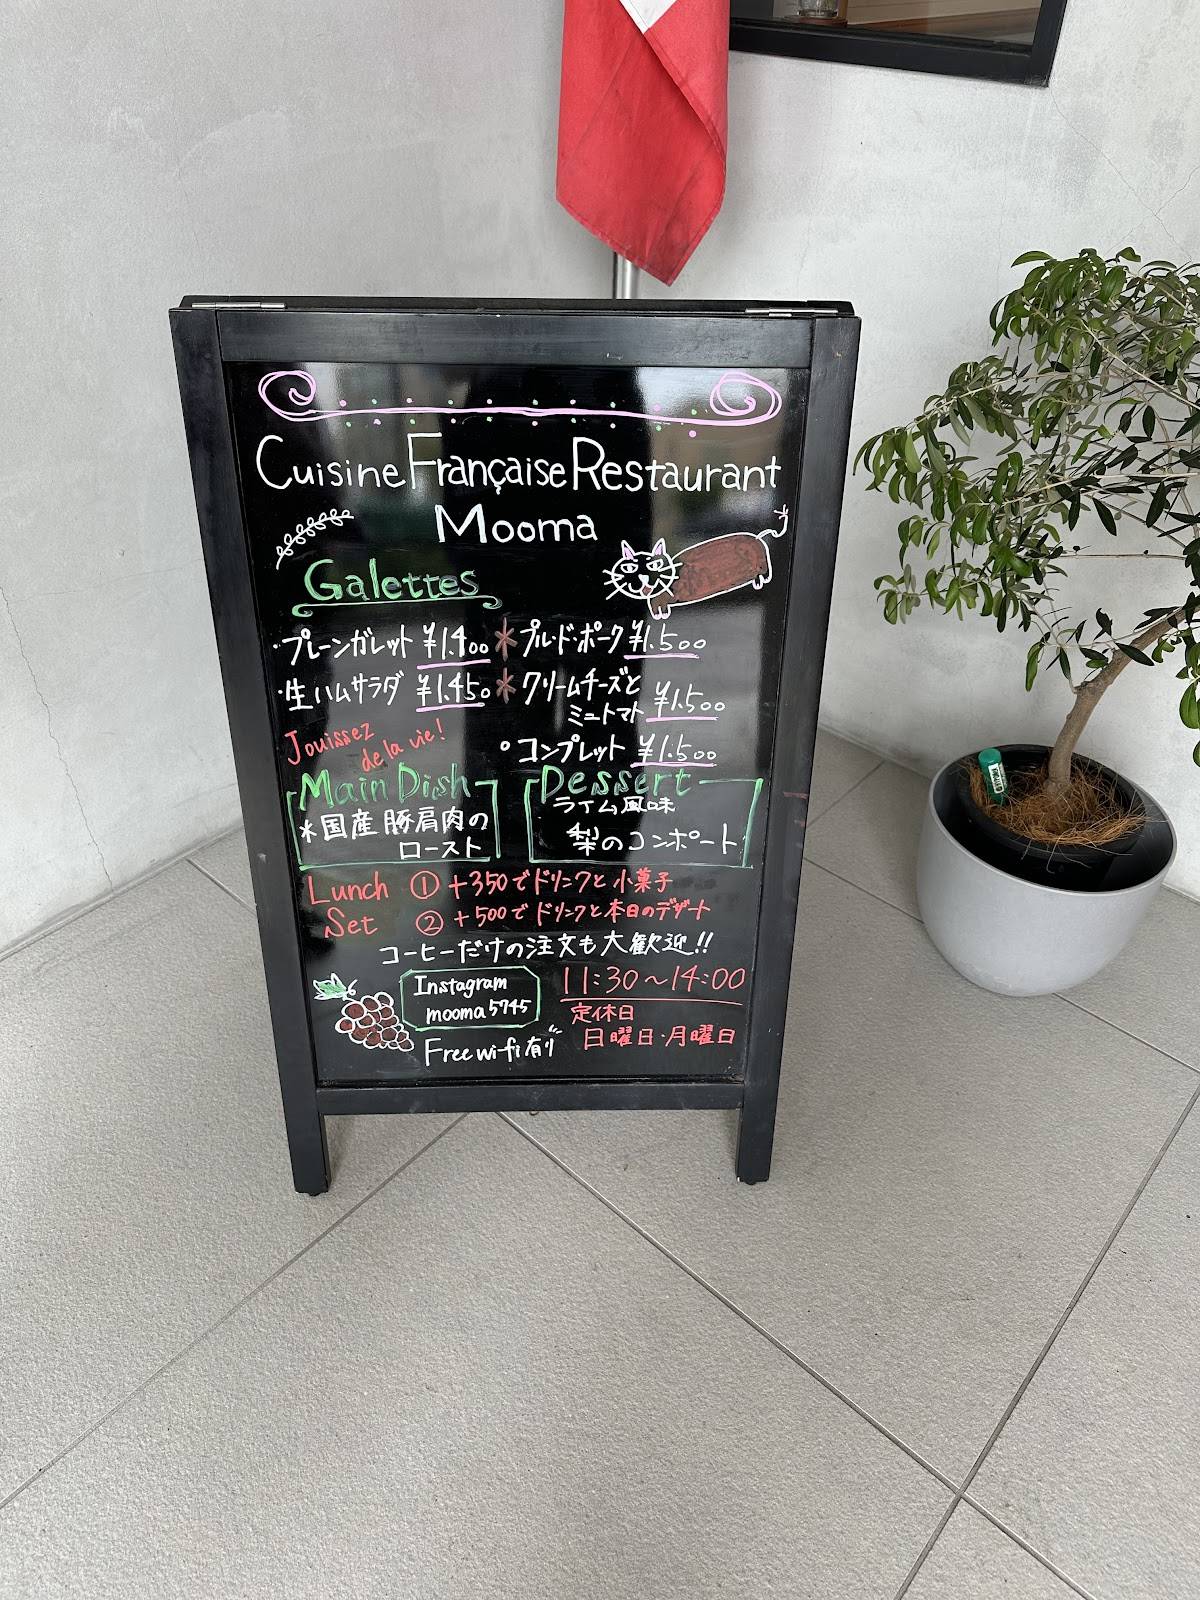 Cuisine Française Restaurant
Mooma
Galettes
・プレーンガレット ¥1.400
・生ハムサラダ ¥1.450
＊プル・ド・ポーク ¥1.500
＊クリームチーズと
ミニトマト ¥1.500
○コンプレット ¥1.500
Jouissez
de la vie!
Main Dish
＊国産豚肩肉の
ロースト
Dessert
ライム風味
梨のコンポート
Lunch ① +350でドリンクと小菓子
Set ② +500でドリンクと本日のデザート
コーヒーだけの注文も大歓迎!!
Instagram
mooma5745
Free wi-fi有り
11:30〜14:00
定休日
日曜日・月曜日